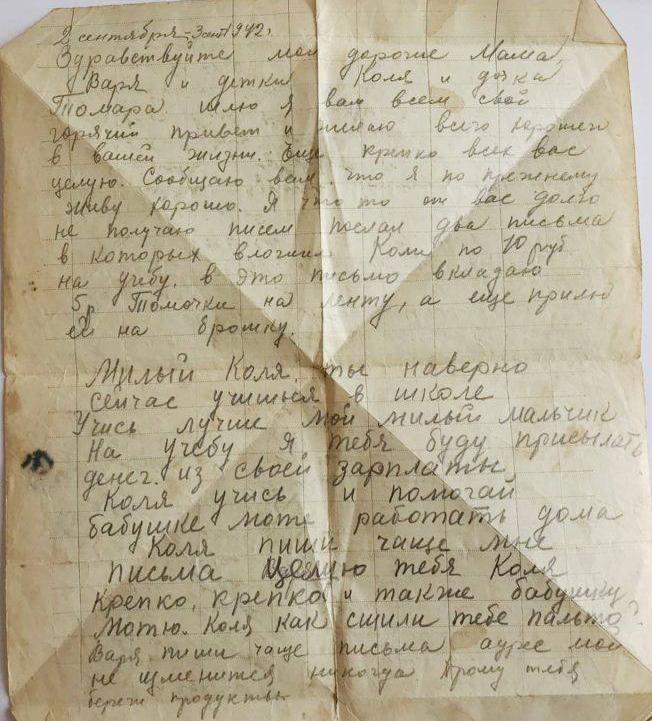 2 сентября - 1942г.
Здравствуйте мои дорогие Мама,
Варя и детки Коля и дочка
Томара шлю я вам всем свой
горячий привет и желаю всего хорошего
в вашей жизни. Еще крепко всех вас
целую. Сообщаю вам что я по прежнему
живу хорошо. Я что то от вас долго
не получаю писем послал два письма
в которых вложил Коли по 10 руб
на учебу. в это письмо вкладаю
5р Томочки на ленту, а еще пришлю
ей на брошку.
Милый Коля, ты наверно
сейчас учишься в школе
Учись лучше мой милый мальчик
На учебу я тебя буду присылать
денег из своей зарплаты
Коля учись и помогай
бабушке моте работать дома
Коля пиши чаще мне
письма целую тебя Коля
крепко, крепко и также бабушку
мотю. Коля как сшили тебе пальто?
Варя пиши чаще письма адрес мой
не изменится никогда Прошу тебя
береги продукты